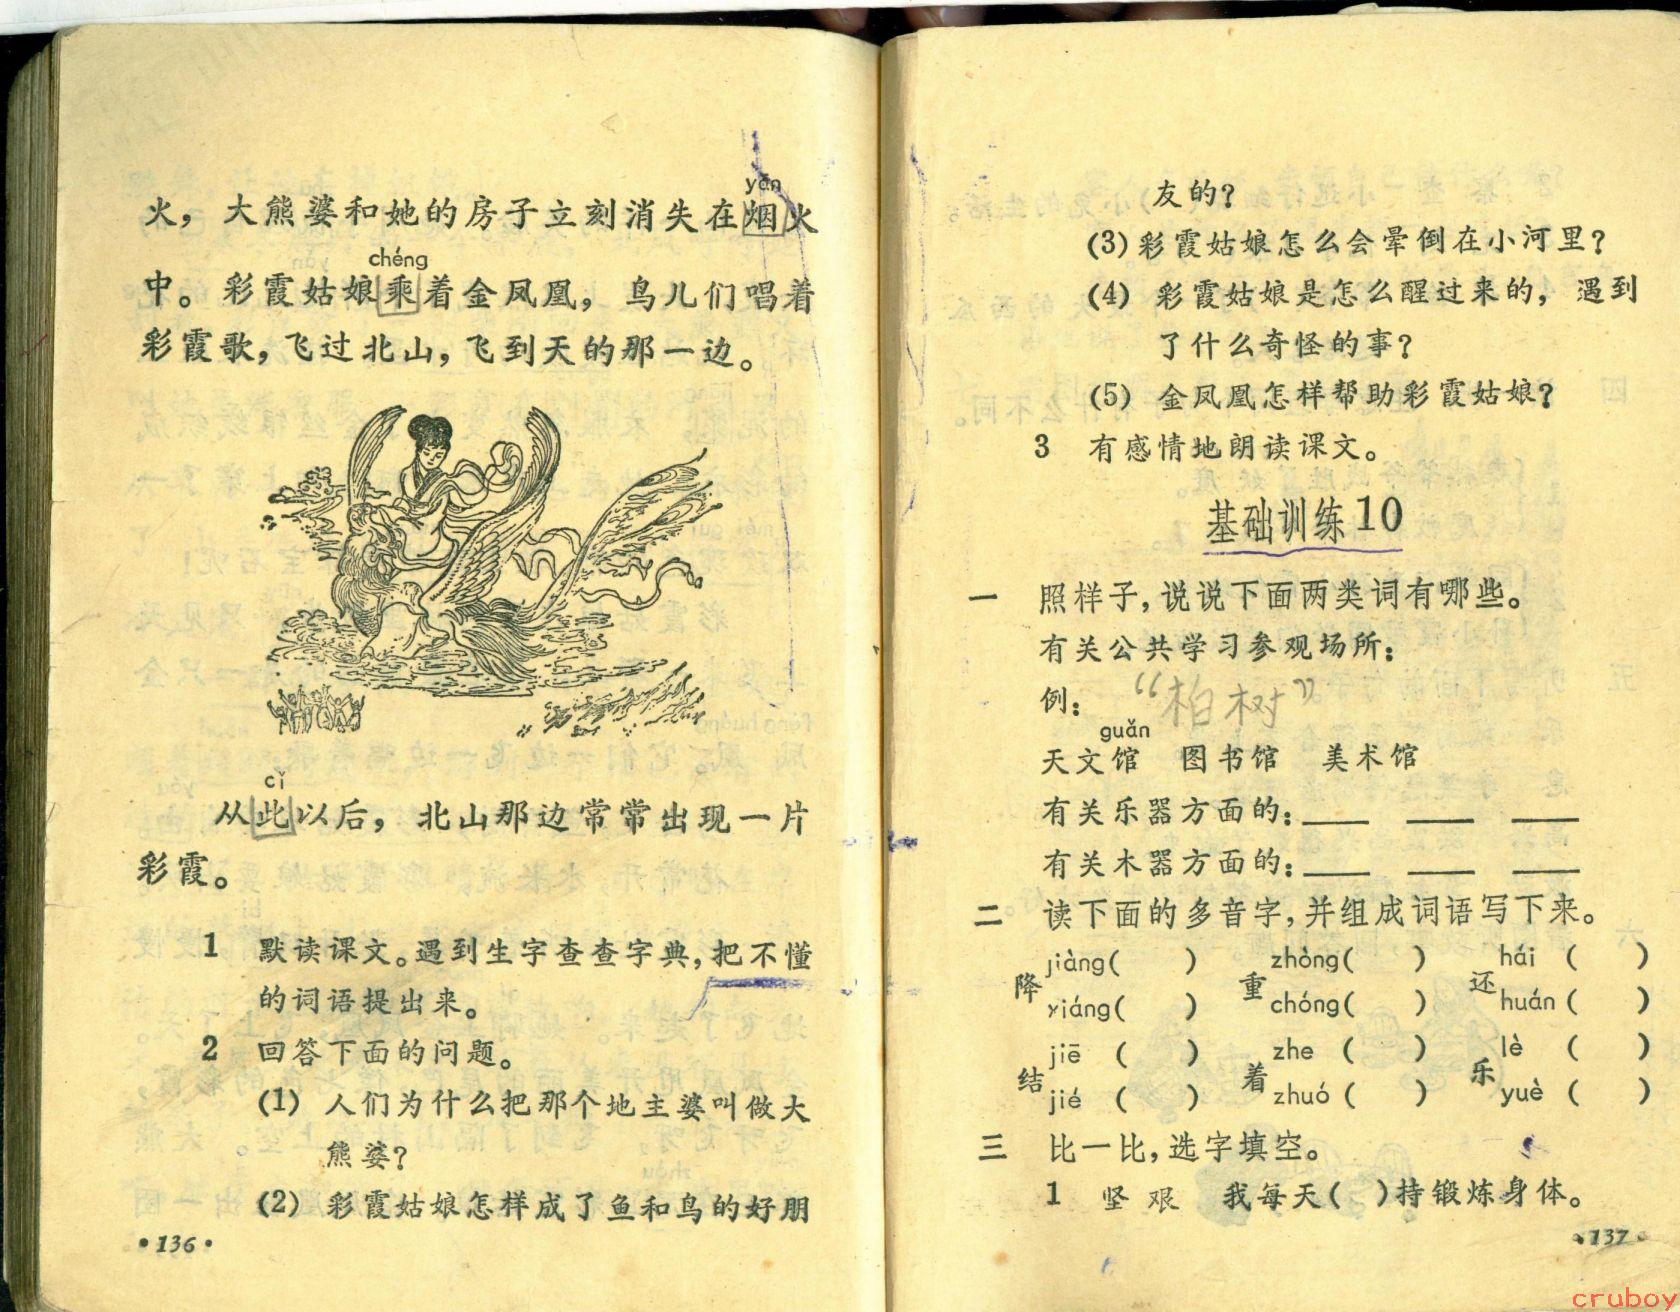 yān
火，大熊婆和她的房子立刻消失在烟火
chéng
中。彩霞姑娘乘着金凤凰，鸟儿们唱着
彩霞歌，飞过北山，飞到天的那一边。
cǐ
从此以后，北山那边常常出现一片
彩霞。
1 默读课文。遇到生字查查字典，把不懂
的词语提出来。
2 回答下面的问题。
(1) 人们为什么把那个地主婆叫做大
熊婆？
(2) 彩霞姑娘怎样成了鱼和鸟的好朋
•136•
友的？
(3) 彩霞姑娘怎么会晕倒在小河里？
(4) 彩霞姑娘是怎么醒过来的，遇到
了什么奇怪的事？
(5) 金凤凰怎样帮助彩霞姑娘？
3 有感情地朗读课文。
基础训练10
一 照样子，说说下面两类词有哪些。
有关公共学习参观场所：
例： “柏树”
guǎn
天文馆 图书馆 美术馆
有关乐器方面的：____ ____ ____
有关木器方面的：____ ____ ____
二 读下面的多音字，并组成词语写下来。
降 jiàng( ) 重 zhòng( ) 还 hái ( )
xiáng( ) chóng( ) huán ( )
结 jiē ( ) 着 zhe ( ) 乐 lè ( )
jié ( ) zhuó ( ) yuè ( )
三 比一比，选字填空。
1 坚 艰 我每天( )持锻炼身体。
•137•
cruboy